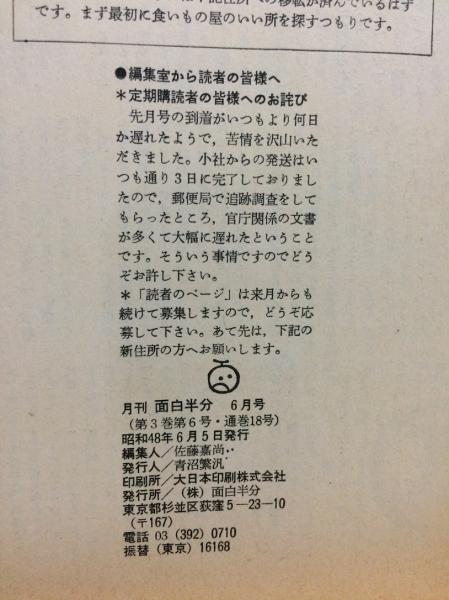 です。まず最初に食いもの屋のいい所を探すつもりです。
●編集室から読者の皆様へ
＊定期購読者の皆様へのお詫び
先月号の到着がいつもより何日
か遅れたようで，苦情を沢山いた
だきました。小社からの発送はい
つも通り3日に完了しておりまし
たので，郵便局で追跡調査をして
もらったところ，官庁関係の文書
が多くて大幅に遅れたということ
です。そういう事情ですのでどう
ぞお許し下さい。
＊「読者のページ」は来月からも
続けて募集しますので，どうぞ応
募して下さい。あて先は，下記の
新住所の方へお願いします。
月刊 面白半分 6月号
（第3巻第6号・通巻18号）
昭和48年6月5日発行
編集人／佐藤嘉尚
発行人／青沼繁汎
印刷所／大日本印刷株式会社
発行所／（株）面白半分
東京都杉並区荻窪5－23－10
（〒167）
電話 03（392）0710
振替（東京）16168